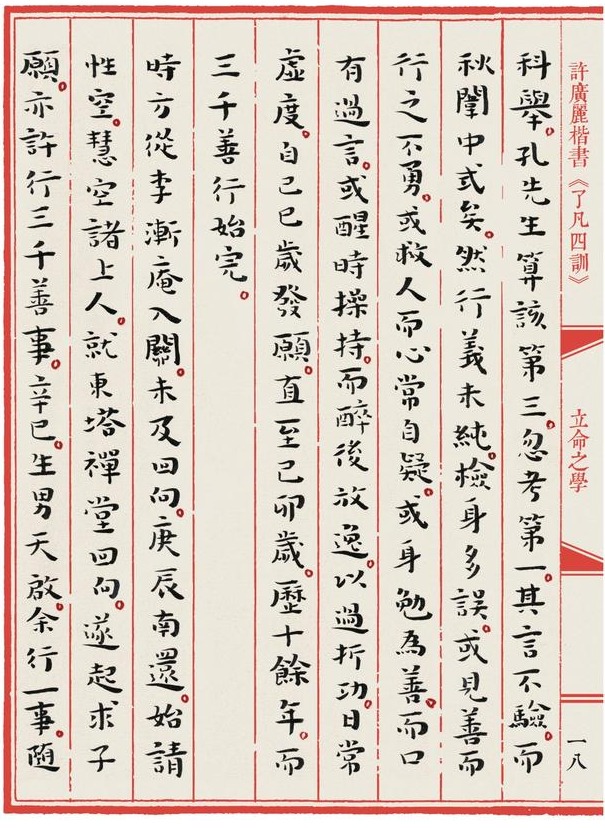 許廣麗楷書《了凡四訓》
立命之學
一八
科舉。孔先生算該第三。忽考第一。其言不驗。而
秋闈中式矣。然行義未純。檢身多誤。或見善而
行之不勇。或救人而心常自疑。或身勉為善。而口
有過言。或醒時操持。而醉後放逸。以過折功。日常
虛度。自己巳歲發願。直至己卯歲。歷十餘年。而
三千善行始完。
時方從李漸庵入關。未及回向。庚辰南還。始請
性空。慧空諸上人。就東塔禪堂回向。遂起求子
願。亦許行三千善事。辛巳。生男天啟。余行一事。隨